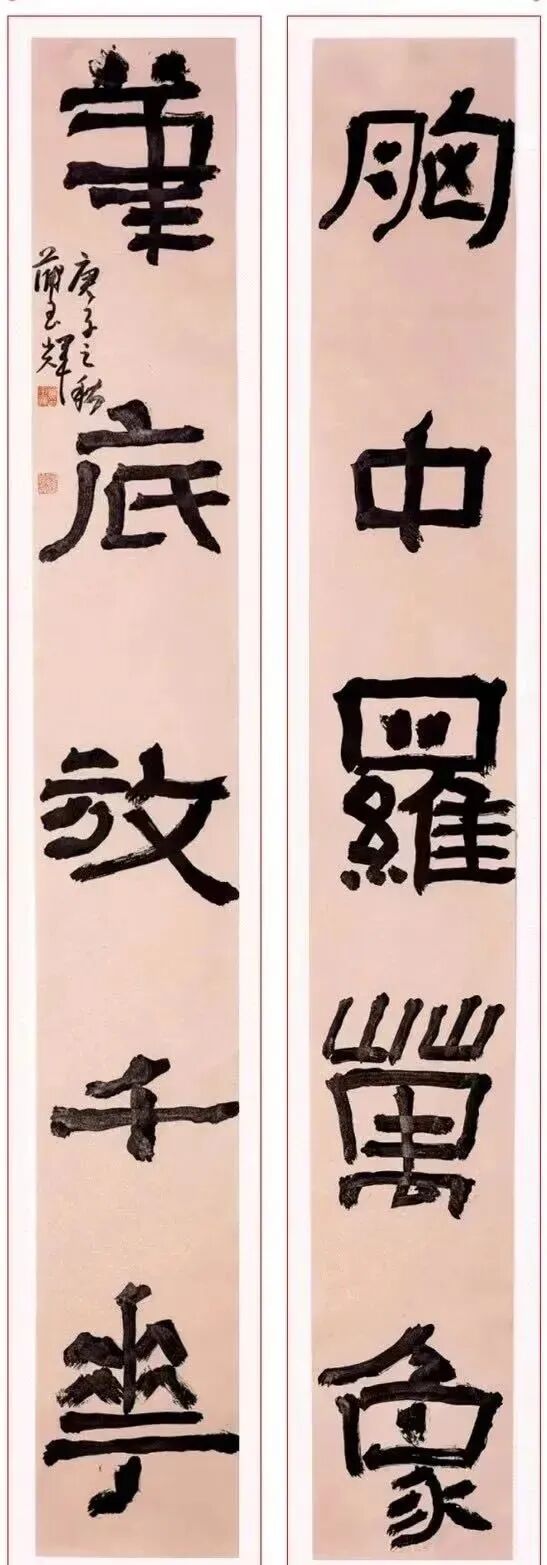 胸中羅萬象
筆底放千華
庚子之秋
蒲玉輝